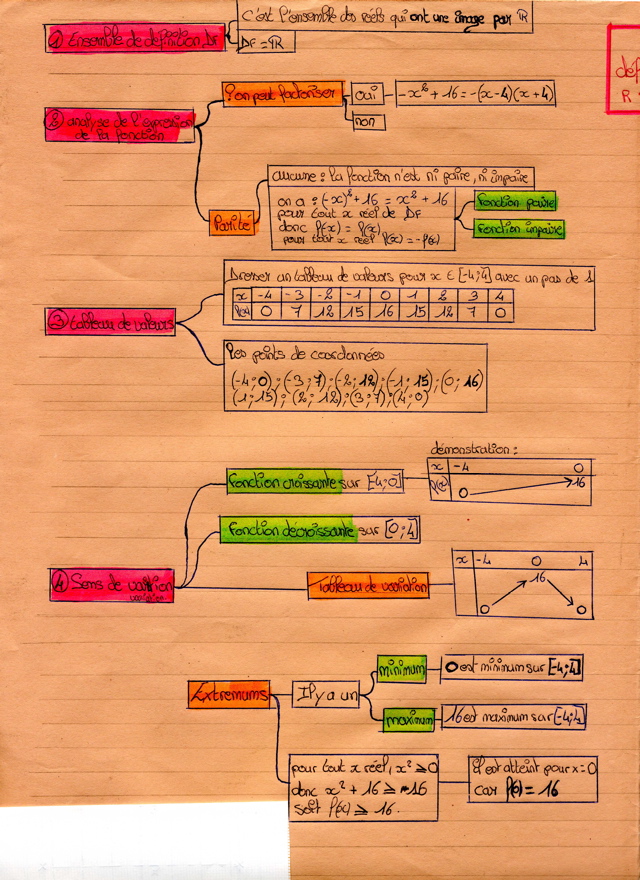 C'est l'ensemble des réels qui ont une image par R
① Ensemble de définition Df
Df = R
déf
R
? on peut factoriser
oui
-x² + 16 = -(x-4)(x+4)
non
② analyse de l'expression
de la fonction
aucune : la fonction n'est ni paire, ni impaire
Parité
on a : (-x)² + 16 = x² + 16
pour tout x réel de Df
donc f(x) = f(x)
pour tout x réel f(x) = -f(x)
fonction paire
fonction impaire
Dresser un tableau de valeurs pour x ∈ [-4;4] avec un pas de 1
x -4 -3 -2 -1 0 1 2 3 4
f(x) 0 7 12 15 16 15 12 7 0
③ tableau de valeurs
Les points de coordonnées
(-4;0);(-3;7);(-2;12);(-1;15);(0;16)
(1;15);(2;12);(3;7);(4;0)
démonstration :
fonction croissante sur [-4;0]
x -4 0
f(x) 0 16
fonction décroissante sur [0;4]
④ Sens de
variation
Tableau de variation
x -4 0 4
16
0 0
Extremums
Il y a un
minimum
0 est minimum sur [-4;4]
maximum
16 est maximum sur [-4;4]
pour tout x réel, x² ≥ 0
donc x² + 16 ≥ 16
soit f(x) ≥ 16.
il est atteint pour x = 0
car f(0) = 16